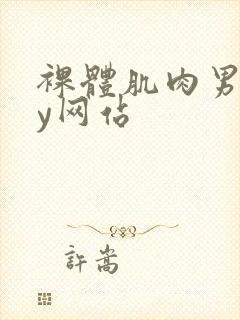 裸體肌肉男
y网佔
許嵩